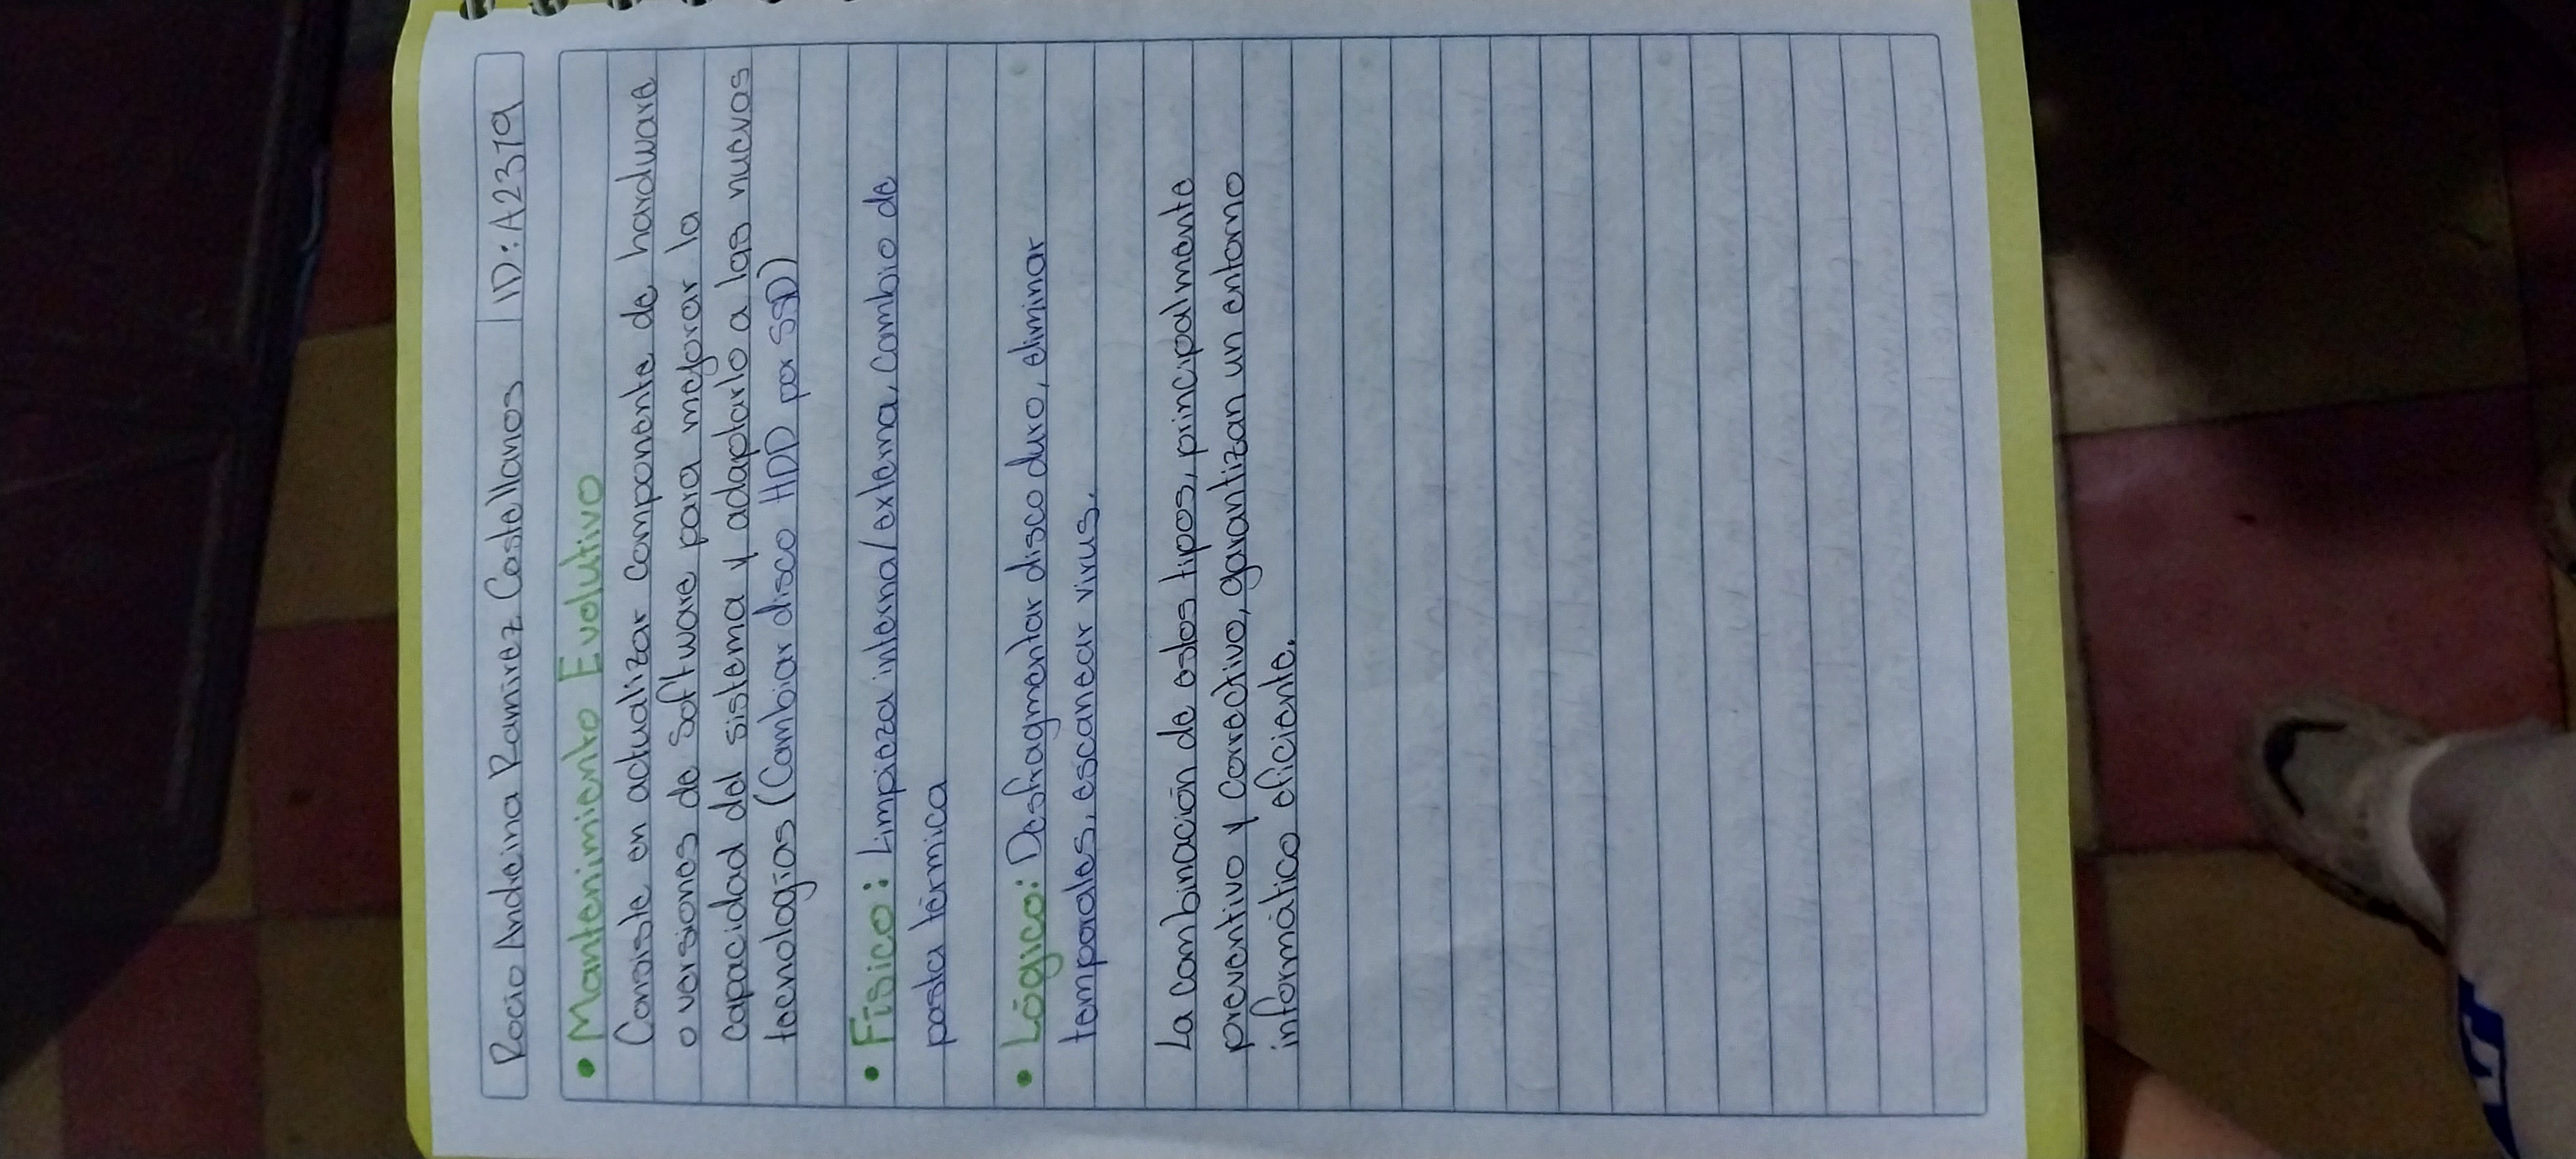 Rocio Andreina Ramirez Castellanos | ID: A2379
• Mantenimiento Evolutivo
Consiste en actualizar componente de hardware
o versiones de software para mejorar la
capacidad del sistema y adaptarlo a las nuevos
tecnologias (Cambiar disco HDD por SSD)
• Físico: Limpieza interna/externa, cambio de
pasta térmica
• Lógico: Desfragmentar disco duro, eliminar
temporales, escanear virus.
La combinación de estos tipos, principalmente
preventivo y correctivo, garantizan un entorno
informático eficiente.